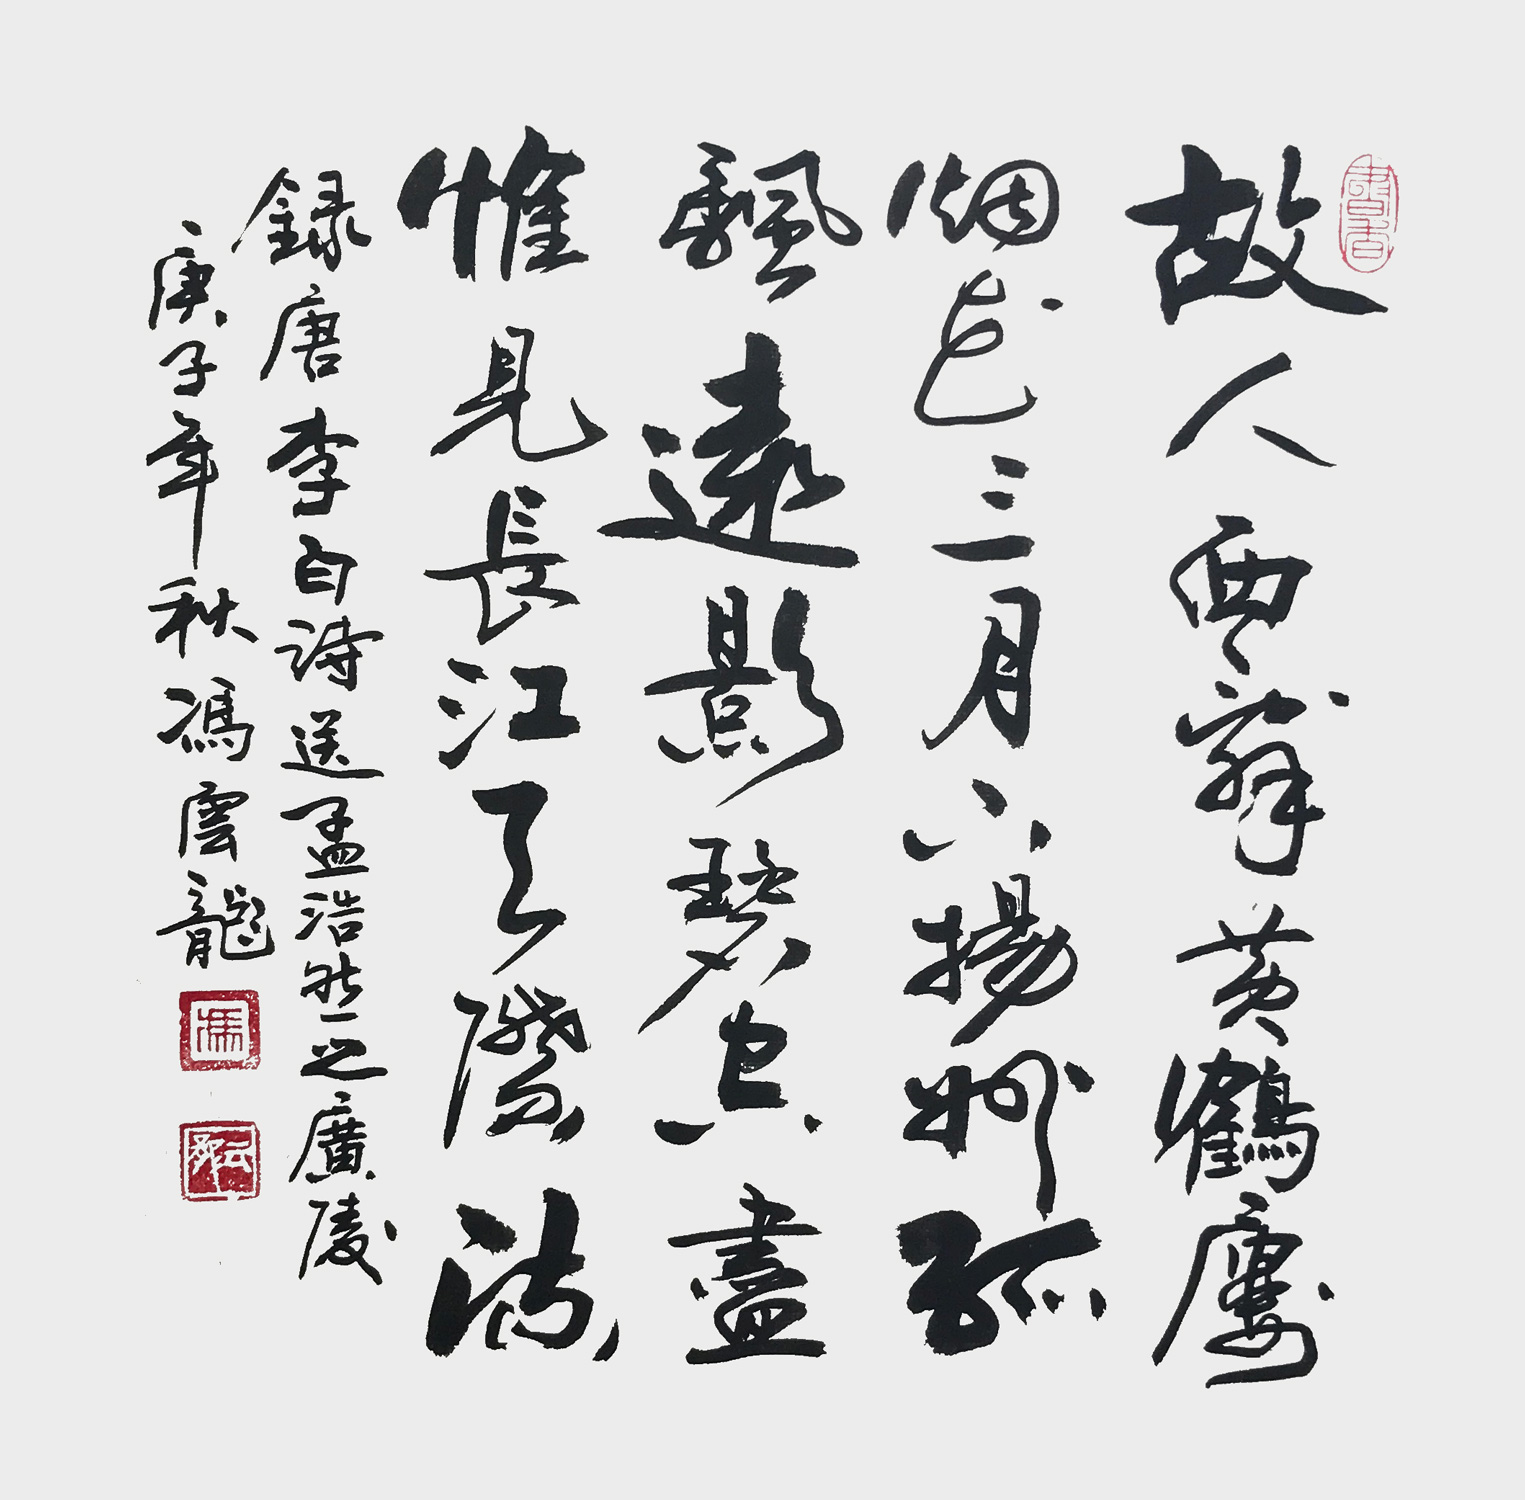 書香
故人西辭黃鶴廔
烟花三月下揚州孤
颿遠影碧空盡
惟見長江天際流
録唐李白詩送孟浩然之廣陵
庚子年秋馮雲龍
馮